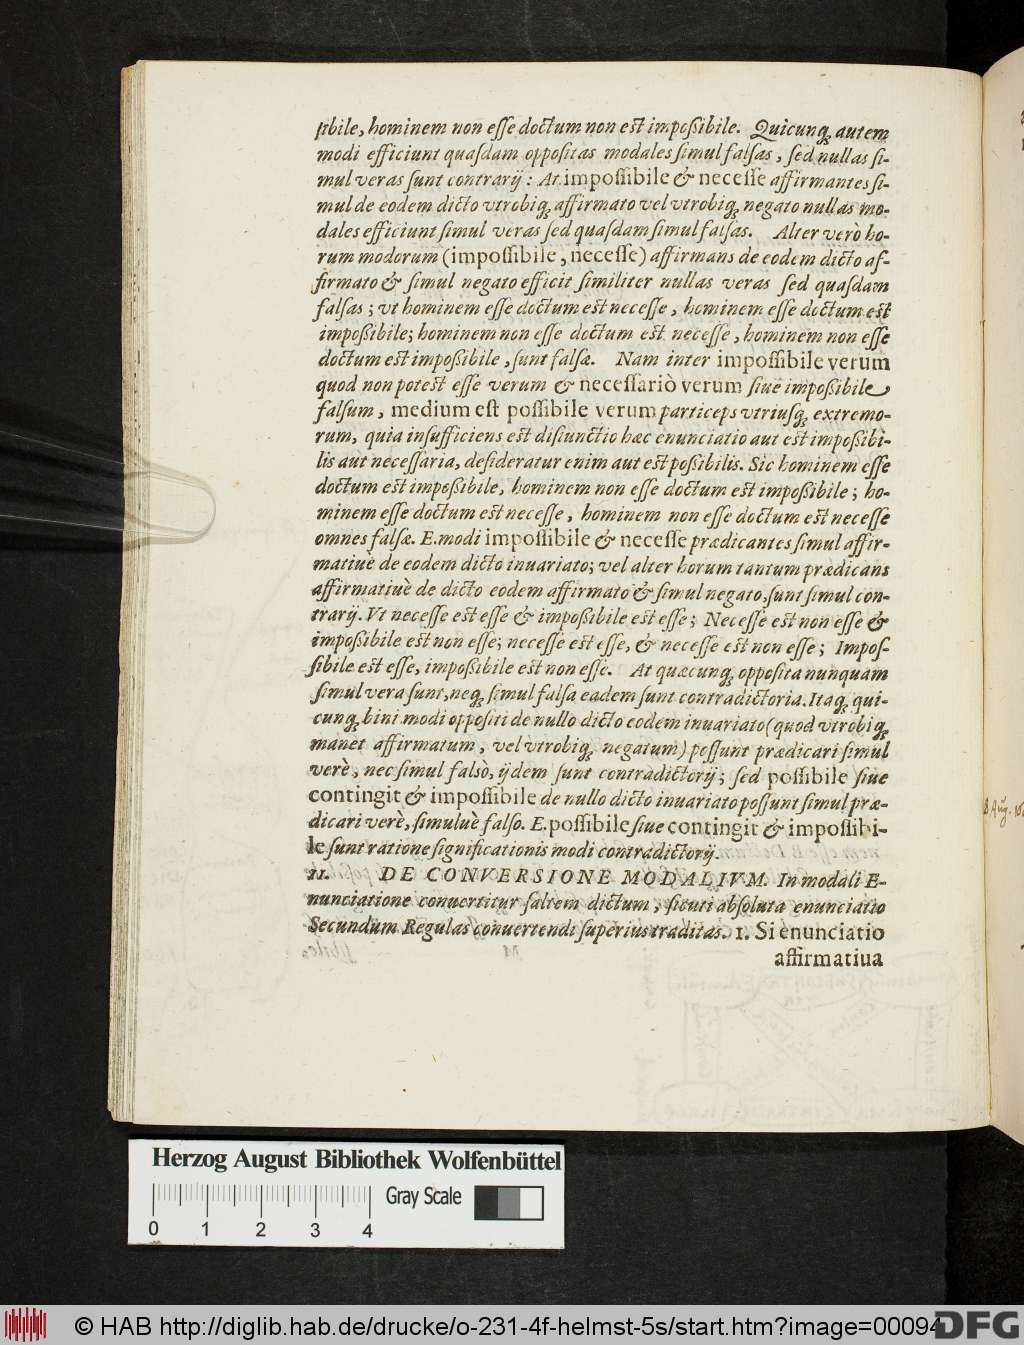 sibile, hominem non esse doctum non est impoßibile. Quicunq́; autem
modi efficiunt quasdam oppositas modales simul falsas, sed nullas si-
mul veras sunt contrarij: At impossibile & necesse affirmantes si-
mul de eodem dicto vtrobiq́; affirmato vel vtrobiq́; negato nullas mo-
dales efficiunt simul veras sed quasdam simul falsas. Alter verò ho-
rum modorum (impossibile, necesse) affirmans de eodem dicto af-
firmato & simul negato efficit similiter nullas veras sed quasdam
falsas; vt hominem esse doctum est necesse, hominem esse doctum est
impoßibile; hominem non esse doctum est necesse, hominem non esse
doctum est impoßibile, sunt falsæ. Nam inter impossibile verum
quod non potest esse verum & necessariò verum siue impoßibile
falsum, medium est possibile verum particeps vtriusq́; extremo-
rum, quia insufficiens est disiunctio hæc enunciatio aut est impoßibi-
lis aut necessaria, desideratur enim aut est poßibilis. Sic hominem esse
doctum est impoßibile, hominem non esse doctum est impoßibile; ho-
minem esse doctum est necesse, hominem non esse doctum est necesse
omnes falsæ. E. modi impossibile & necesse prædicantes simul affir-
matiuè de eodem dicto inuariato; vel alter horum tantum prædicans
affirmatiuè de dicto eodem affirmato & simul negato, sunt simul con-
trarij. Vt necesse est esse & impoßibile est esse; Necesse est non esse &
impoßibile est non esse; necesse est esse, & necesse est non esse; Impos-
sibile est esse, impoßibile est non esse. At quæcunq́; opposita nunquam
simul vera sunt, neq́; simul falsa eadem sunt contradictoria. Itaq́; qui-
cunq́; bini modi oppositi de nullo dicto eodem inuariato (quod vtrobiq́;
manet affirmatum, vel vtrobiq́; negatum) possunt prædicari simul
verè, nec simul falsò, ijdem sunt contradictorij; sed possibile siue
contingit & impossibile de nullo dicto inuariato possunt simul præ-
dicari verè, simuluè falso. E. possibile siue contingit & impossibi-
le sunt ratione significationis modi contradictorij.
11. DE CONVERSIONE MODALIVM. In modali E-
nunciatione conuertitur saltem dictum, sicuti absoluta enunciatio
Secundum Regulas conuertendi superius traditas. 1. Si enunciatio
affirmatiua
Herzog August Bibliothek Wolfenbüttel
Gray Scale
0 1 2 3 4
© HAB http://diglib.hab.de/drucke/o-231-4f-helmst-5s/start.htm?image=00094
DFG